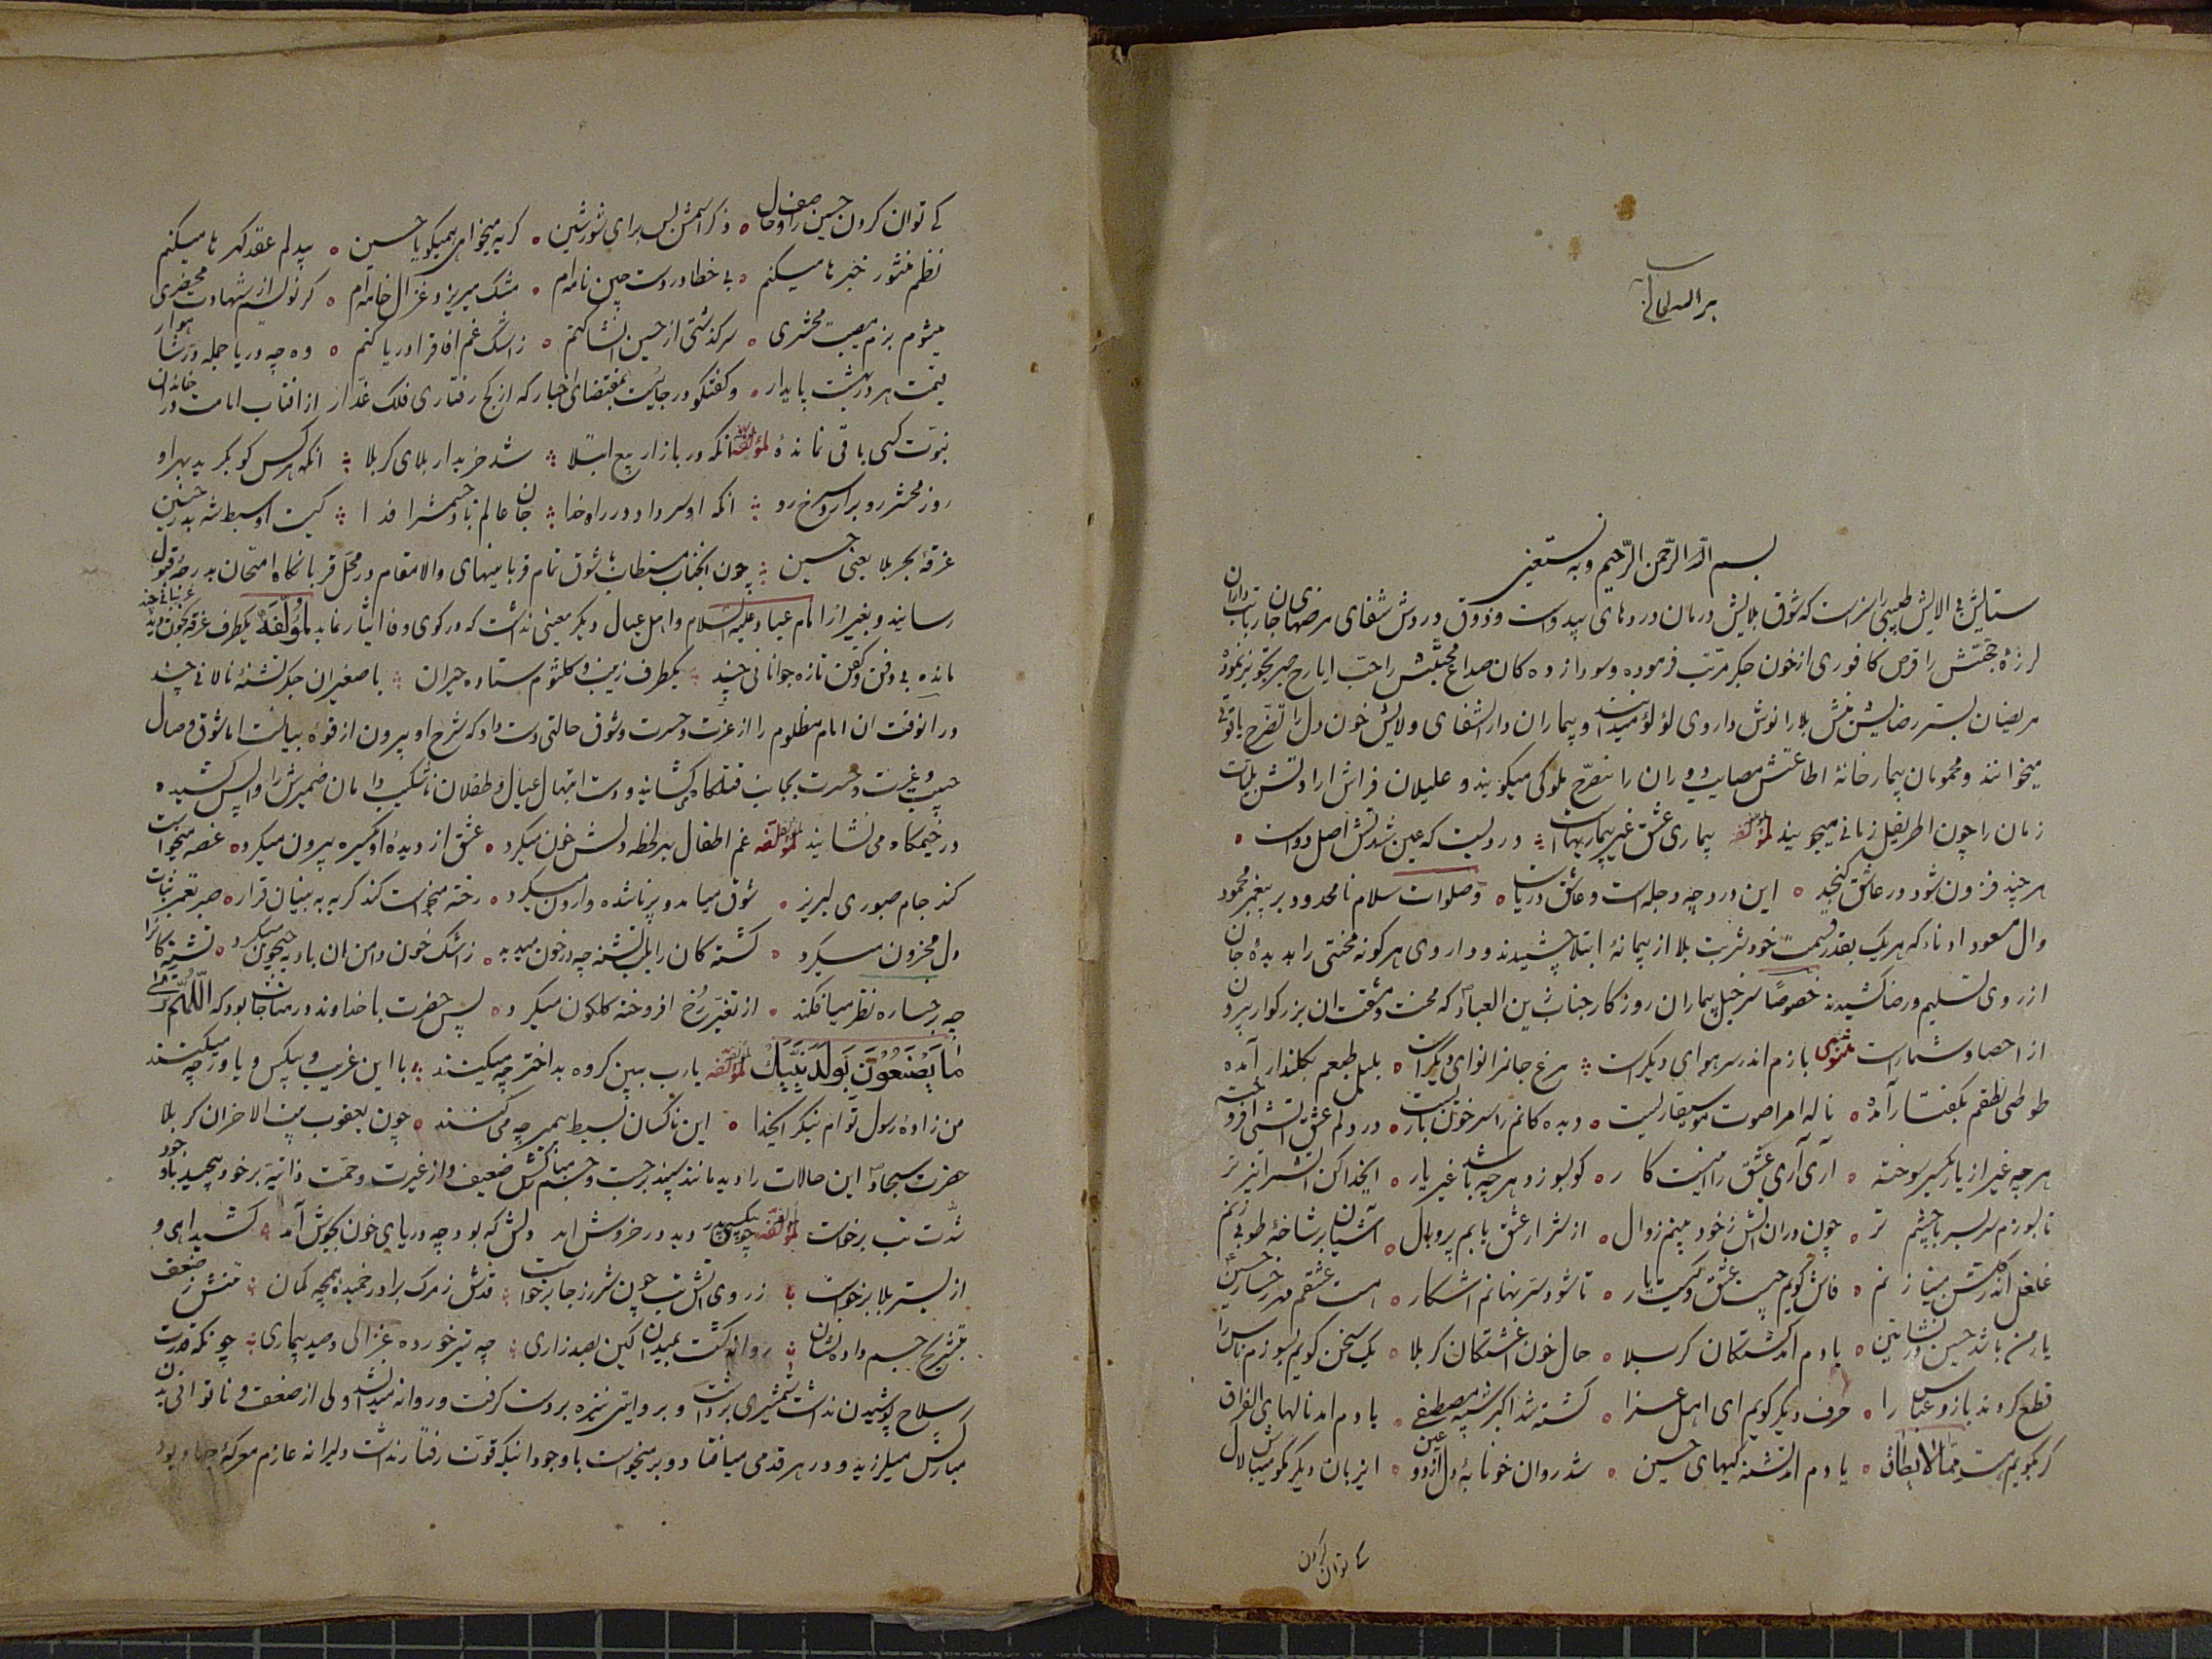 بسم الله الرّحمن الرّحیم وبه نستعین
ستایش بی الایش طبیبی راسزاست که شوق بلایش درمان دردهای بیدواست وذوق دردش شفای مرضهای جان
لرزهٔ محبّتش را قرص کافوری ازخون جکر مرتب فرموده وسودازده کان صداع محبّتش را حبّ ایارج صبر تجویز نموده
مریضان بستر رضایش نیش بلا را نوش داروی لؤلؤ میدانند وبیماران دارالشفای ولایش خون دل را مفرّح یاقوتی
میخوانند ومحمومان بیمارخانهٔ اطاعتش مصایب دوران را مفرّح ملوکی میکویند وعلیلان فراش ارادتش بلیّات
زمان را چون اطریفل زمانی میجویند لمؤلفه بیماری عشق غیر بیماریهاست دردیست که عین شدتش اصل دواست
هرچند فزون شود در عاشق کنجید این درد چه دجله است وعاشق دریاست وصلوات سلام نامحدود بر پیغمبر محمود
وال مسعود او باد که هریک بقدر قسمت خود شربت بلا از پیمانهٔ ابتلا چشیدند وداروی هرکونه محنتی را بدیدهٔ جان
ازروی تسلیم ورضا کشیدند خصوصًا سرخیل بیماران روزکار جناب زین العباد که محنت ومشقت ان بزرکوار بیرون
از احصا وشمار است مثنوی بازم اندر سر هوای دیکرست مرغ جانرا نوای دیکرست بلبل طبعم بکلزار آمده
طوطی نطقم بکفتار آمده ناله ام را صوت موسیقاریست دیده کانم را سر خونباریست در دلم عشق اتشی افروخته
هرچه غیر از یار یکسر سوخته آری آری عشق را اینست کار کو بسوزد هرچه باشد غیر یار ایخدا کن اتشم را تیزتر
تا بسوزم سربسر با چشم تر چون دران اتش زخود بینم زوال از شرار عشق یابم پر وبال آشیان بر شاخهٔ طوبی زنم
غلغل اندر کلشن مینا زنم فاش کویم چیست عشق وکیست یار تا شود سرّ نهانم اشکار هست عشقم مهر رخسار حسین
یار من باشد حسین در نشاتین یادم امد کشتکان کربلا حال خون اغشتکان کربلا یک سخن کویم بسوزم ناس را
قطع کردند بازوی عباس را حرف دیکر کویم ای اهل عزا کشته شد اکبر شبیه مصطفی یادم امد نالهای الفراق
کر بکویم هست ممّا لا یطاق یادم امد تشنه کیهای حسین شد روان خونابهٔ دل از دو عین ایزبان دیکر مکو میباش لال
کی توان کردن
کی توان کردن حسین را وصف حال ذکر اسمش بس برای شور وشین کریه میخواهی همیکو یا حسین بیدلم عقد کهرها میکنم
نظم منثور خبرها میکنم بی خطا در دست چین نامه ام مشک میریزد غزال خامه ام کر نویسم از شهادت محضری
میشوم بزم مصیبت محشری سرکذشتی از حسین انشا کنم زاشک غم افاق را دریا کنم وه چه دریا جمله درّ شاهوار
قیمت هر درّ بهشت پایدار وکفتکو در جائیست بمقتضای اخبار که از کج رفتاری فلک غدّار از افتاب امامت در خاندان
نبوّت کسی باقی نمانده لمؤلفه انکه در بازار بیع ابتلا شد خریدار بلای کربلا انکه هر کس کو بکرید بهر او
روز محشر رو براه سرخ رو انکه او سر داد در راه خدا جان عالم باد جسمش را فدا کیست او سبط شه بدر وحنین
غرقهٔ بحر بلا یعنی حسین چون انجناب مستطاب بشوق تمام قربانیهای والامقام در محل قربانکاه امتحان بدرجهٔ قبول
رسانید وبغیر از امام عباد علیه السلام واهل عیال دیکر معینی نداشت که در کوی وفا ایثار نماید لمؤلفه یکطرف غرقه بخون دید
مانده بی دفن وکفن تازه جوانانی چند یکطرف زینب وکلثوم ستاده حیران با صغیران جکر تشنهٔ نالانی چند
در انوقت ان امام مظلوم را از عزت وحسرت وشوق حالتی دست داد که شرح او بیرون از قوّهٔ بیانست اما شوق وصال
حبیب وغیرت وحسرت بجانب قتلکاه میکشانید ودست ابتهال عیال وطفلان ناشکیب دامان ضمیرش را واپس کشیده
در خیمکاه می نشانید لمؤلفه غم اطفال بهر لحظه دلش خون میکرد عشق از دیدهٔ او کیره بیرون میکرد غصه میخواست
کند جام صبوری لبریز شوق میامد وپر ناشده وارون میکرد رخنه میخواست کند کریه به بنیان قرار صبر تعمیر ثبات
دل محزون میکرد کشته کان را بلب تشنه چه در خون میدید زاشک خون دامن ان بادیه جیحون میکرد تشنه کانرا
چه برخساره نظر میافکند از تغیّر رُخ افروخته کلکون میکرد پس حضرت با خداوند در مناجات بود که اللّهمّ تری
ما یَصْنَعُونَ بِوَلَدِ نَبیِّکَ لمؤلفه یارب ببین کروه بداختر چه میکنند با این غریب وبیکس وبی یاور چه میکنند
من زادهٔ رسول توام بنکر ایخدا این ناکسان بسبط پیمبر چه می کنند چون یعقوب بیت الاحزان کربلا
حضرت سجاد این حالات را دید مانند سپند برجست وجسم مبارکش ضعیف واز غیرت وحمیّت ذاتیه بر خود پیچید باوجود
شدّت تب برخاست لمؤلفه چو بیکسی پدر دید در خروش امد دلش که بود چه دریای خون بجوش آمد کشید ای و
از بستر بلا برخواست زروی اتش تب چون شرر زجا برخواست قدش زمرک برادر خمیده همچه کمان تنش زضعف
بتشریح جسم داده نشان روانه کشت بمیدان کین بصد زاری چه تیر خورده غزالی وصید بیماری چونکه قدرت
سلاح پوشیدن نداشت شمشیری برداشت وبروایتی نیزه بردست کرفت وروانه میدان شد ولی از ضعف وناتوانی بدن
مبارکش میلرزید ودر هر قدمی میافتاد وبرمیخواست باوجود اینکه قوّت رفتار نداشت دلیرانه عازم معرکهٔ جهاد بود